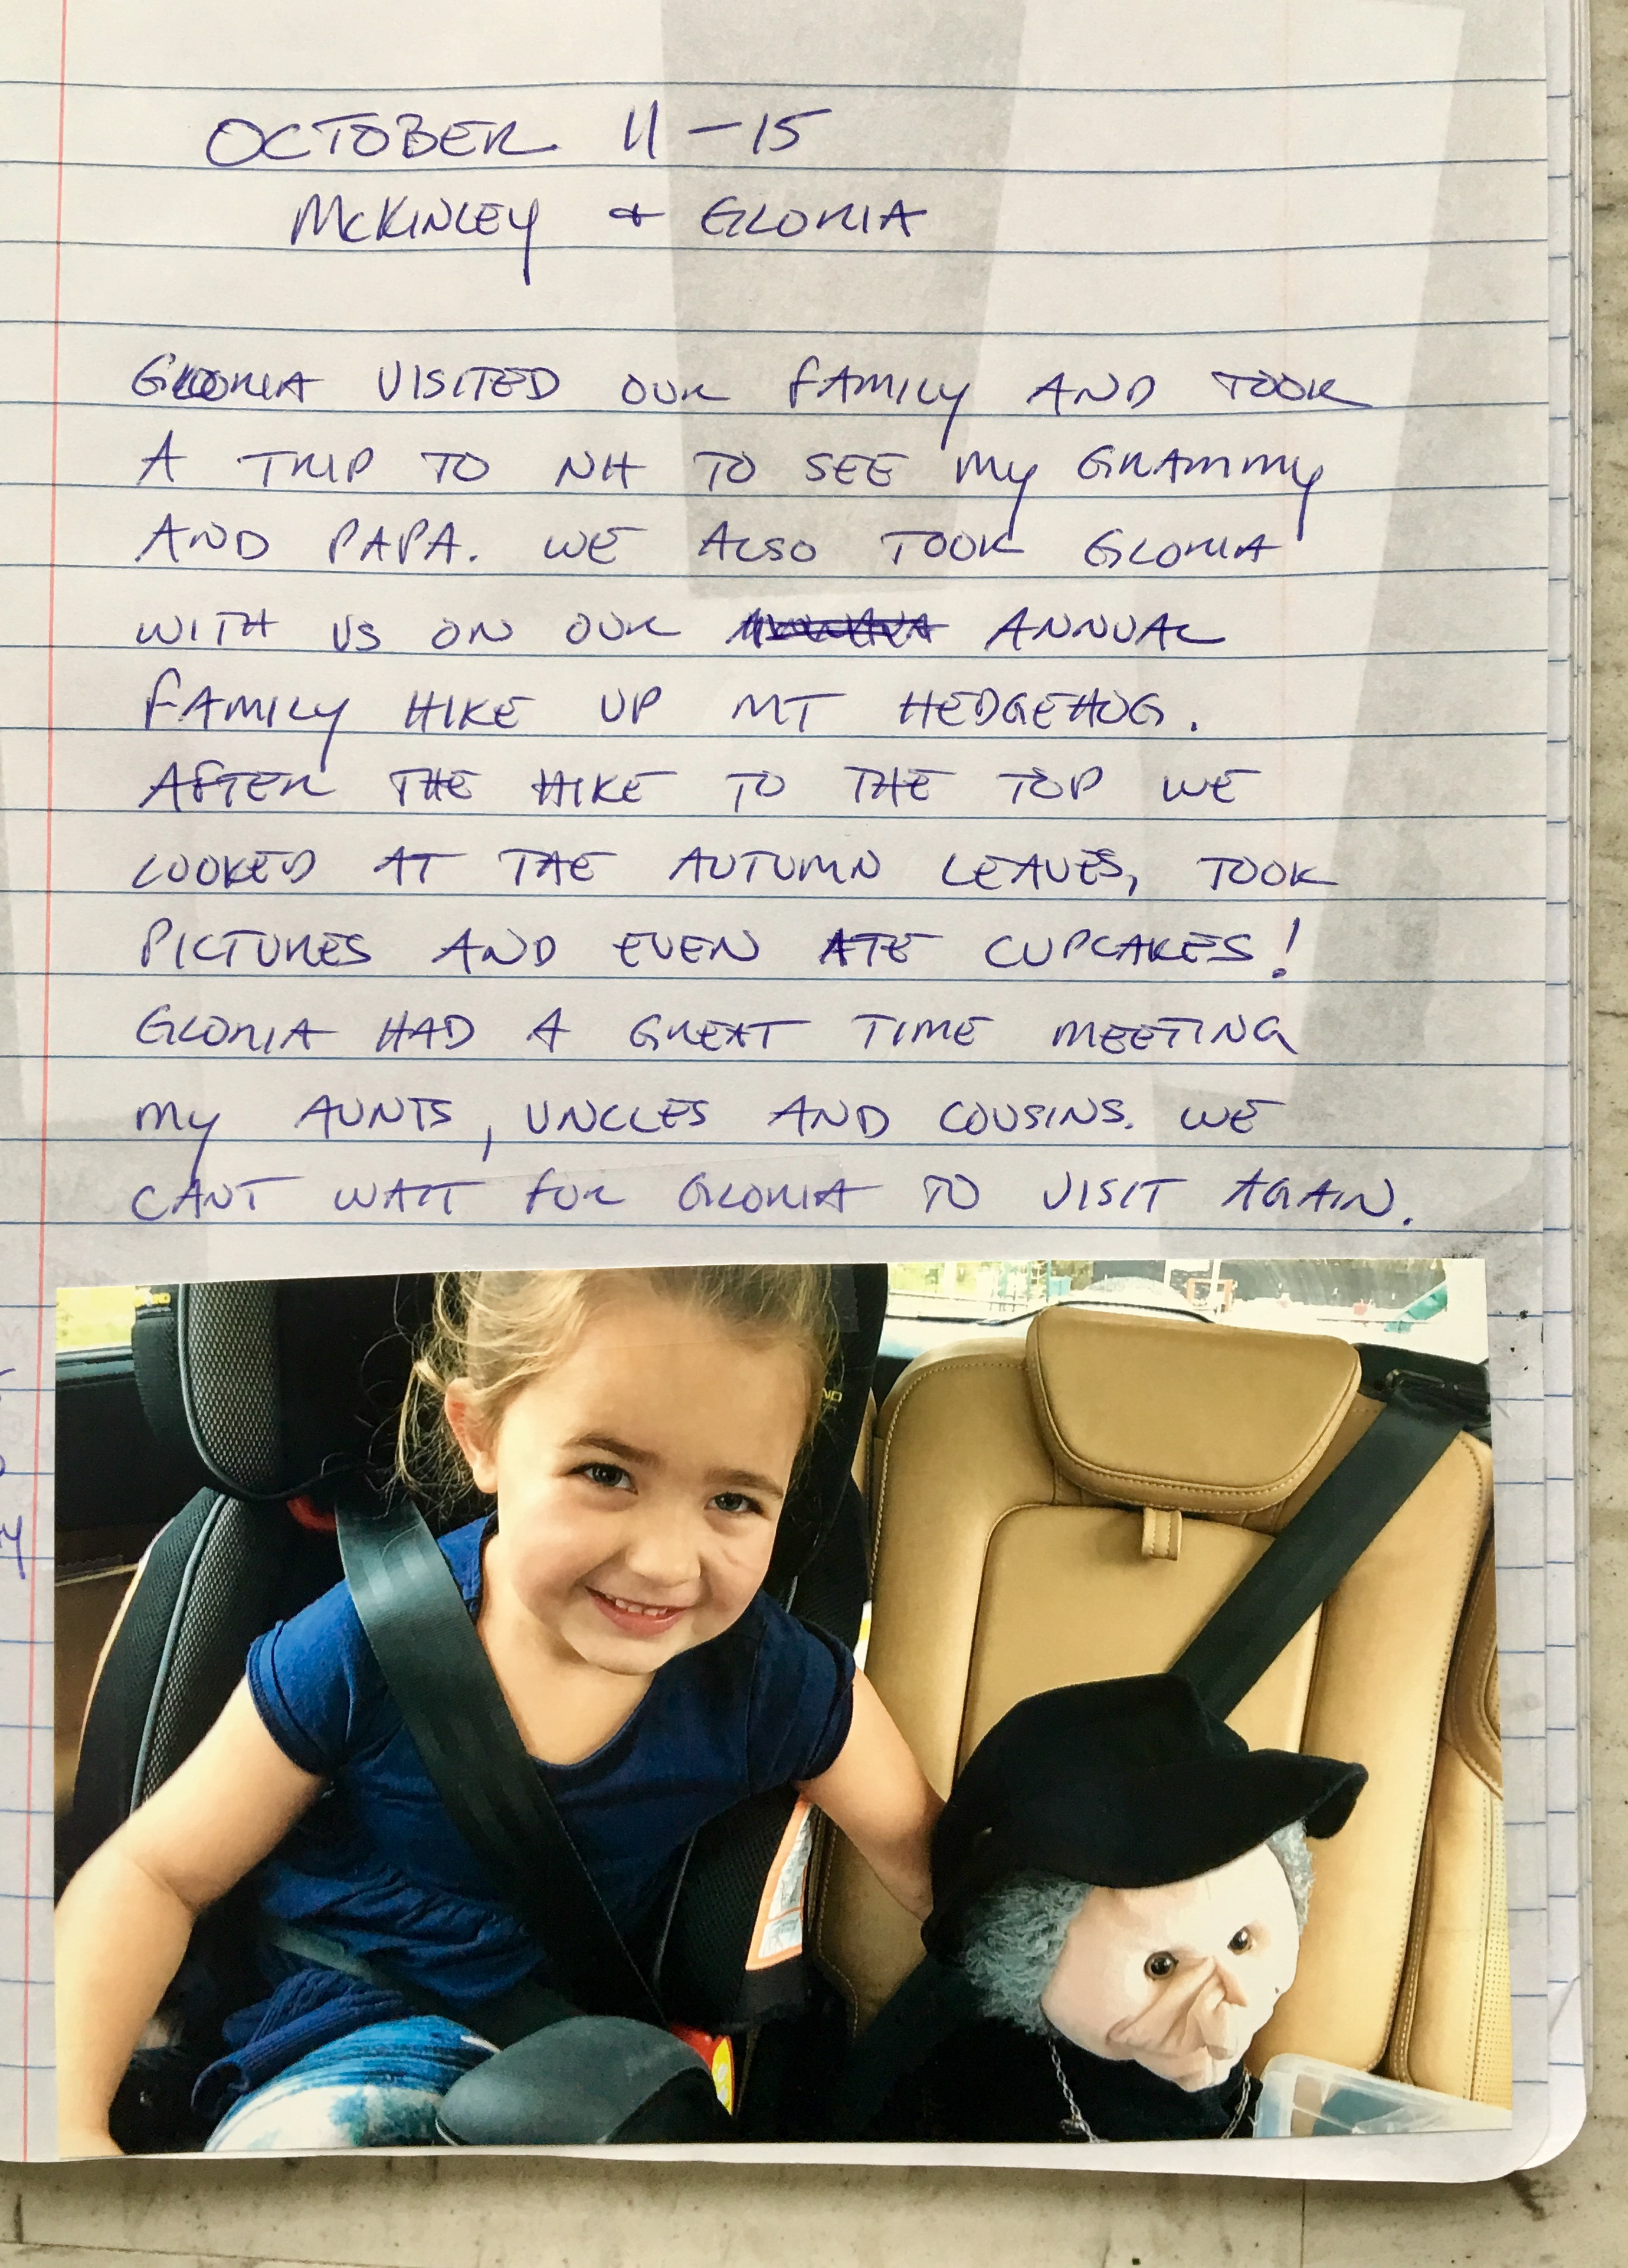 OCTOBER 11-15
McKINLEY + GLORIA
GLORIA VISITED OUR FAMILY AND TOOK
A TRIP TO NH TO SEE MY GRAMMY
AND PAPA. WE ALSO TOOK GLORIA
WITH US ON OUR ANNUAL
FAMILY HIKE UP MT HEDGEHOG.
AFTER THE HIKE TO THE TOP WE
LOOKED AT THE AUTUMN LEAVES, TOOK
PICTURES AND EVEN ATE CUPCAKES!
GLORIA HAD A GREAT TIME MEETING
MY AUNTS, UNCLES AND COUSINS. WE
CANT WAIT FOR GLORIA TO VISIT AGAIN.